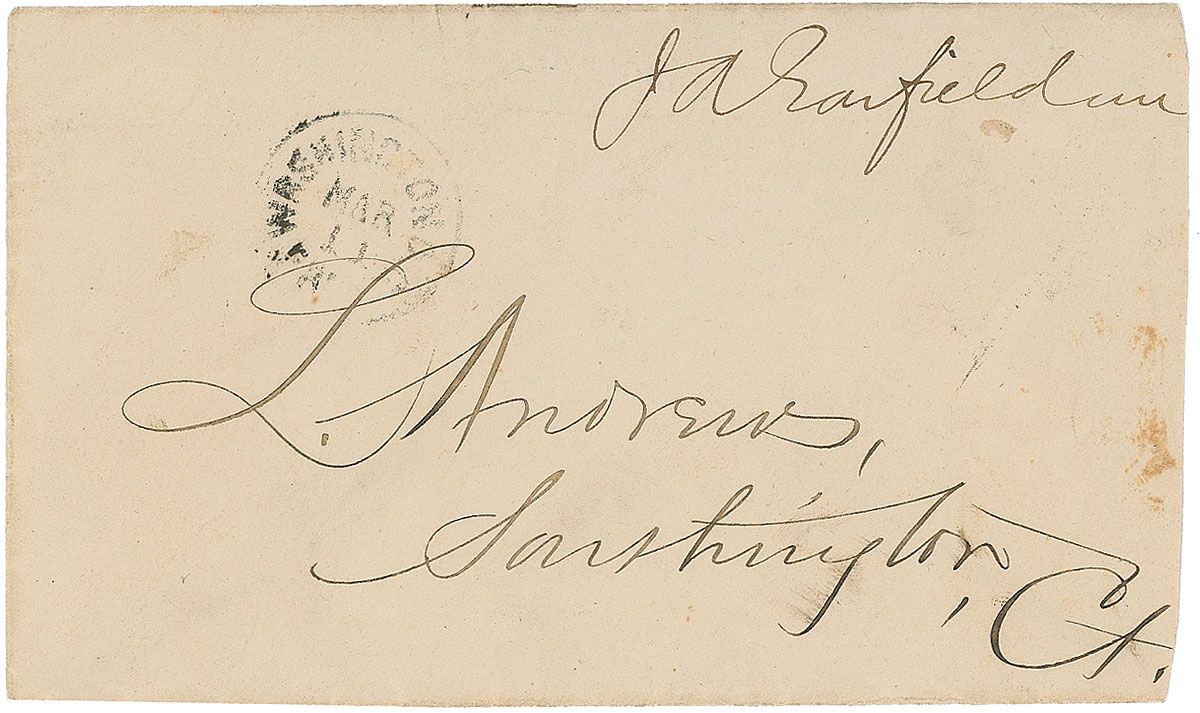 J A Garfield MC
WASHINGTON
MAR
L. Andrews,
Southington,
Ct.